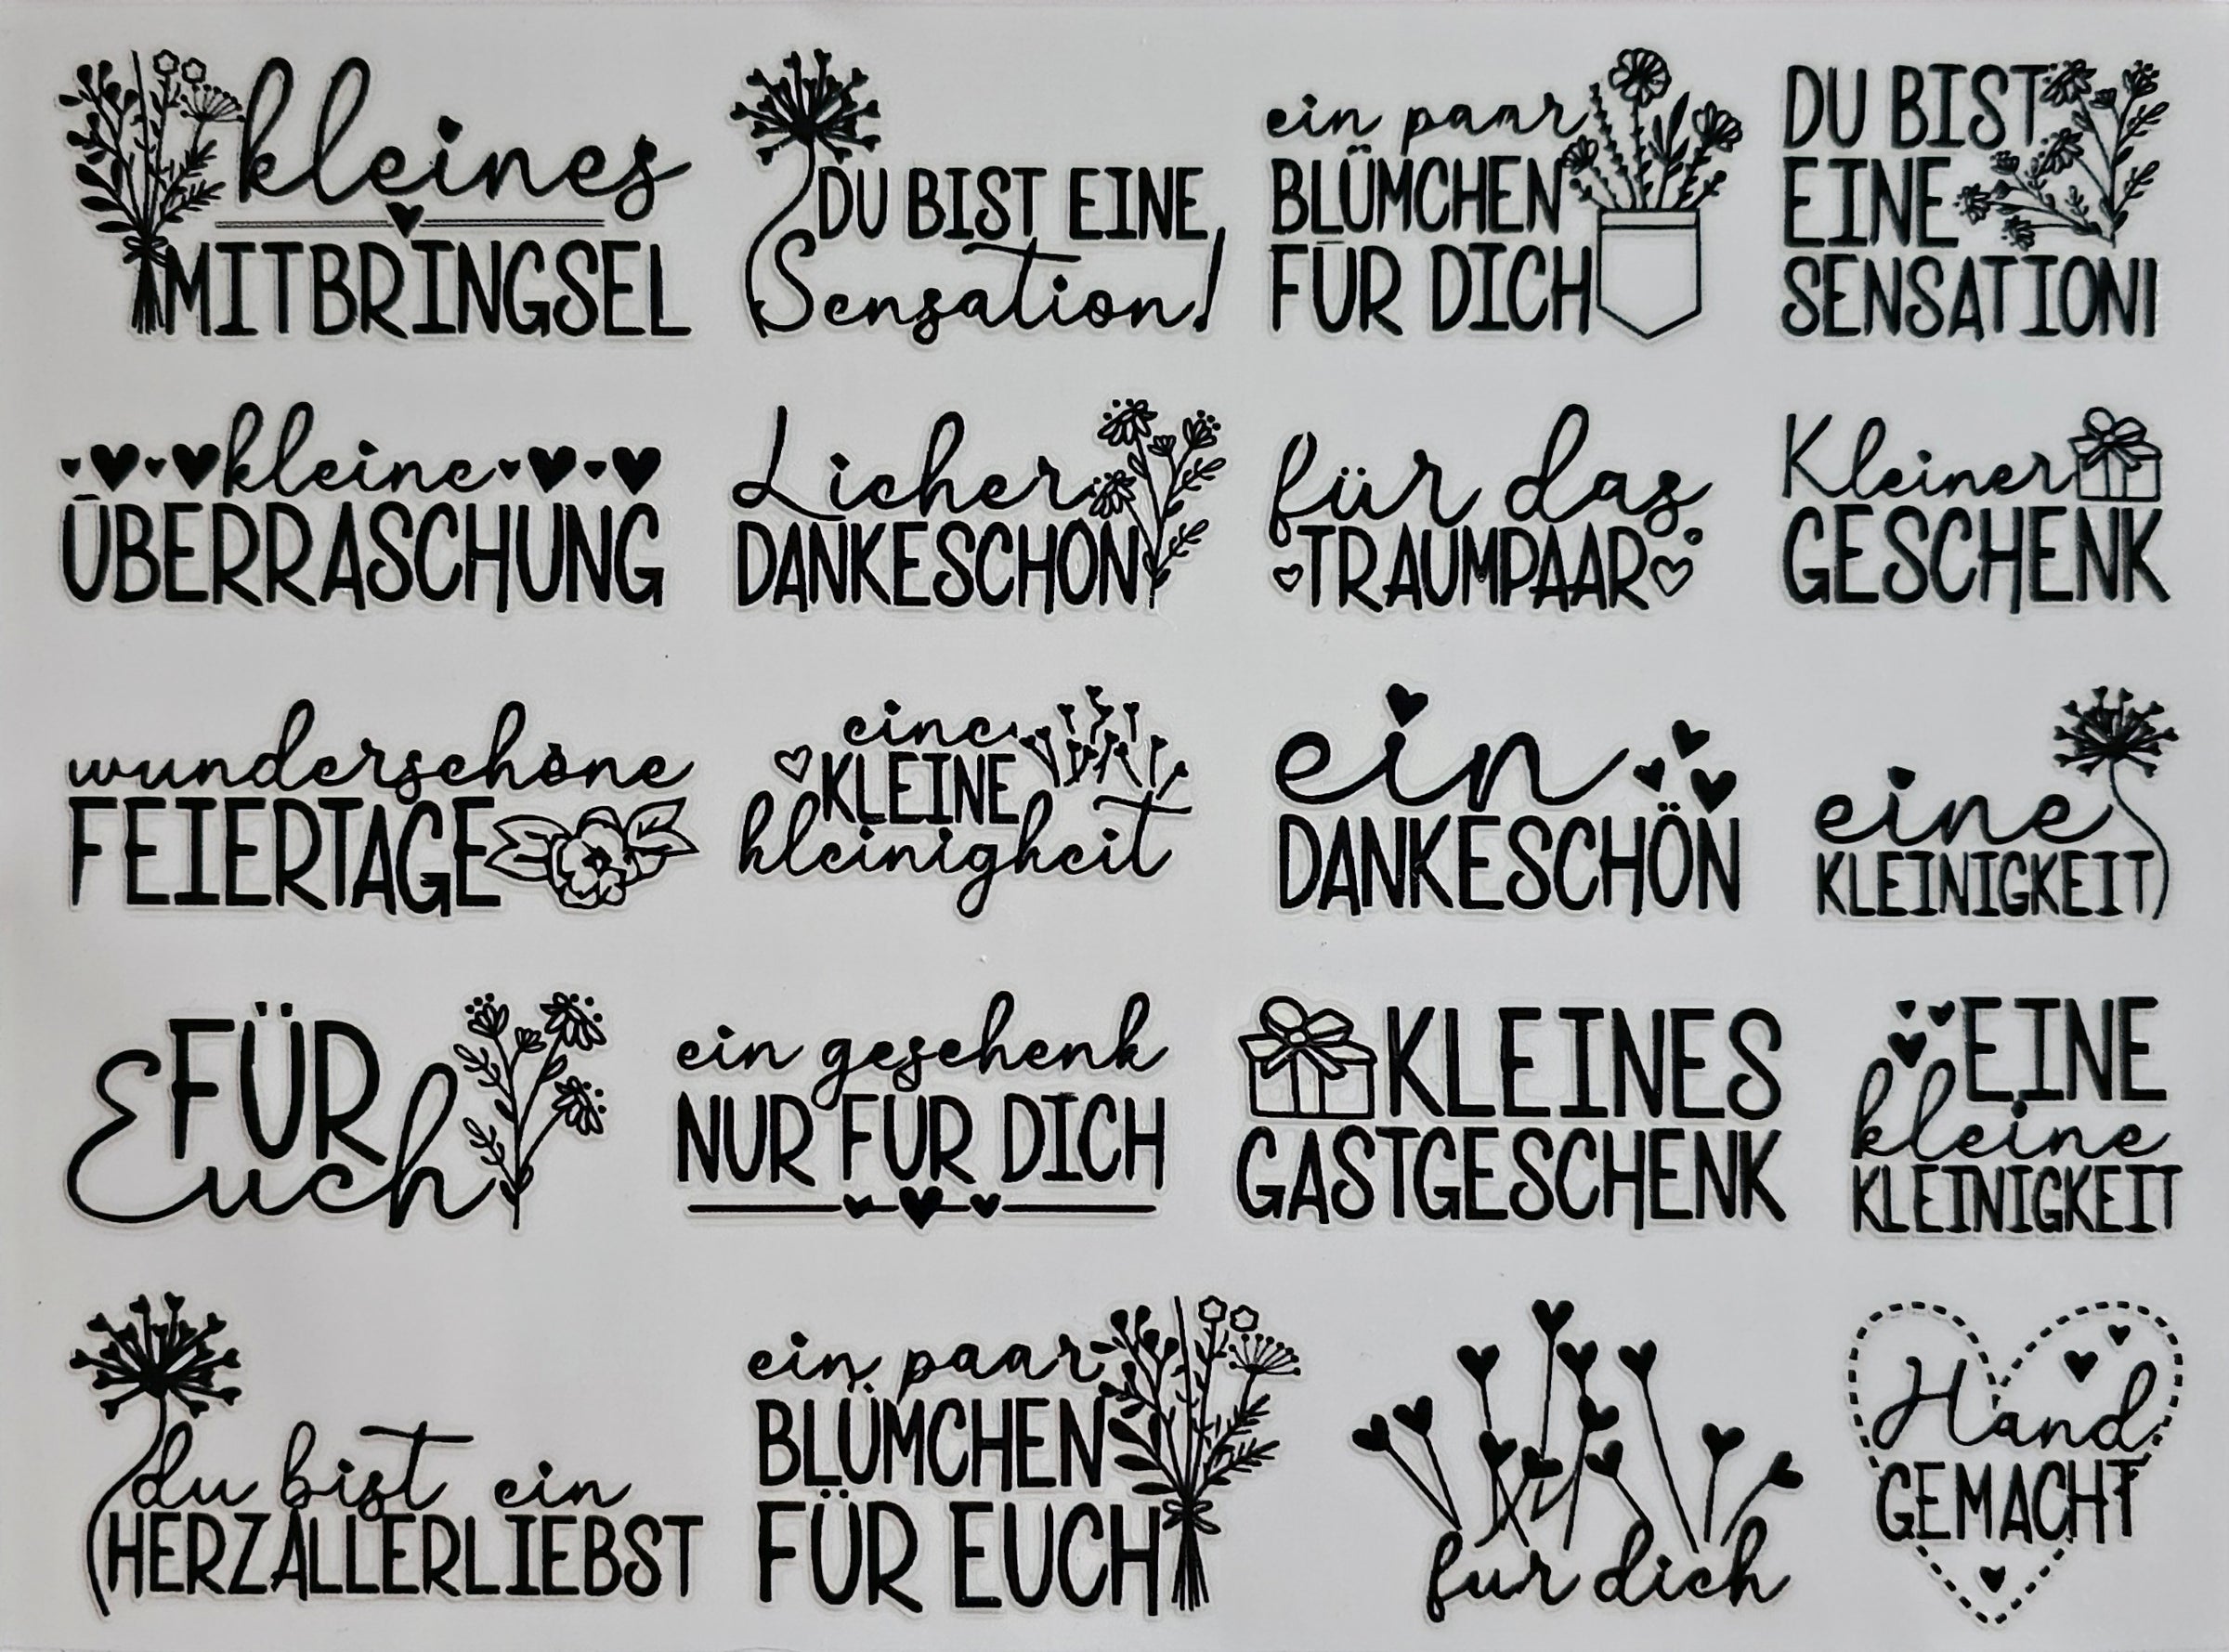 kleines
MITBRINGSEL
DU BIST EINE
Sensation!
ein paar
BLÜMCHEN
FÜR DICH
DU BIST
EINE
SENSATION!
kleine
ÜBERRASCHUNG
Licher
DANKESCHON
für das
TRAUMPAAR
Kleiner
GESCHENK
wunderschöne
FEIERTAGE
eine
KLEINE
kleinigkeit
ein
DANKESCHÖN
eine
KLEINIGKEIT
FÜR
Euch
ein geschenk
NUR FUR DICH
KLEINES
GASTGESCHENK
EINE
kleine
KLEINIGKEIT
du bist ein
HERZALLERLIEBST
ein paar
BLÜMCHEN
FÜR EUCH
fur dich
Hand
GEMACHT